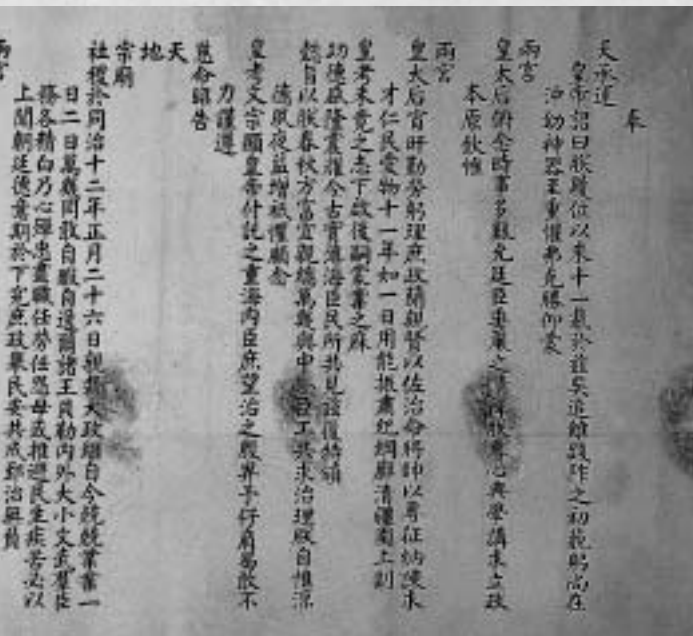 奉
天承運
皇帝詔曰朕踐位以來十一載於茲矣追維踐阼之初藐躬尚在
沖幼神器至重懼弗克勝仰蒙
兩宮
皇太后俯念時事多艱允廷臣垂簾之請俾朕專心典學講求立政
本原欽惟
兩宮
皇太后宵旰勤勞躬理庶政簡親賢以佐治命將帥以專征納諫求
才仁民愛物十一年如一日用能振肅紀綱廓清疆圉上副
皇考未竟之志下啟後嗣蒙業之庥
功德巍隆震耀今古實薄海臣民所共見茲復特頒
懿旨以朕春秋方富宜親總萬幾與中外臣工共求治理朕自惟涼
德夙夜益增祗懼顧念
皇考文宗顯皇帝付託之重海內臣庶望治之殷畀予仔肩曷敢不
力謹遵
慈命昭告
天
地
宗廟
社稷於同治十二年正月二十六日親裁大政繼自今兢兢業業一
日二日萬幾罔敢自暇自逸爾諸王貝勒內外大小文武羣臣
務各精白乃心殫忠盡職任勞任怨毋或推諉民生疾苦必以
上聞朝廷德意期於下究庶政舉民安共成郅治無負
兩宮